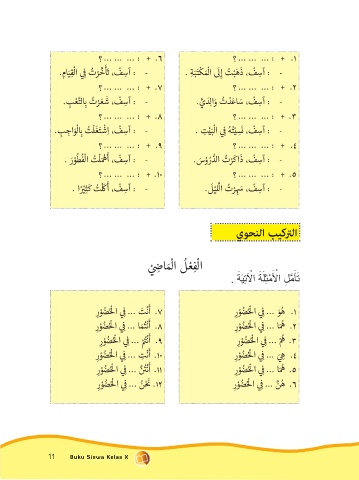 ١. + : ... ... ... ؟
- : آسِفْ، ذَهَبْتُ إِلَى الْمَكْتَبَةِ .
٢. + : ... ... ... ؟
- : آسِفْ، سَاعَدْتُ وَالِدَيَّ.
٣. + : ... ... ... ؟
- : آسِفْ، نَسِيْتُهُ فِي الْبَيْتِ .
٤. + : ... ... ... ؟
- : آسِفْ، ذَاكَرْتُ الدُّرُوْسَ .
٥. + : ... ... ... ؟
- : آسِفْ، سَهِرْتُ اللَّيْلَ.
٦. + : ... ... ... ؟
- : آسِفْ، تَأَخَّرْتُ فِي الْقِيَامِ.
٧. + : ... ... ... ؟
- : آسِفْ، شَعَرْتُ بِالتَّعْبِ.
٨. + : ... ... ... ؟
- : آسِفْ، اِشْتَغَلْتُ بِالْوَاجِبِ.
٩. + : ... ... ... ؟
- : آسِفْ، أَهْمَلْتُ الْفُطُوْرَ .
١٠. + : ... ... ... ؟
- : آسِفْ، أَكَلْتُ كَثِيْرًا .
التركيب النحوي
الْفِعْلُ الْمَاضِيْ
تَأَمَّلِ الْأَمْثِلَةَ الْآتِيَةَ .
١. هُوَ ... فِي الْحُضُوْرِ
٢. هُمَا ... فِي الْحُضُوْرِ
٣. هُمْ ... فِي الْحُضُوْرِ
٤. هِيَ ... فِي الْحُضُوْرِ
٥. هُمَا ... فِي الْحُضُوْرِ
٦. هُنَّ ... فِي الْحُضُوْرِ
٧. أَنْتَ ... فِي الْحُضُوْرِ
٨. أَنْتُمَا ... فِي الْحُضُوْرِ
٩. أَنْتُمْ ... فِي الْحُضُوْرِ
١٠. أَنْتِ ... فِي الْحُضُوْرِ
١١. أَنْتُنَّ ... فِي الْحُضُوْرِ
١٢. نَحْنُ ... فِي الْحُضُوْرِ
11 Buku Siswa Kelas X